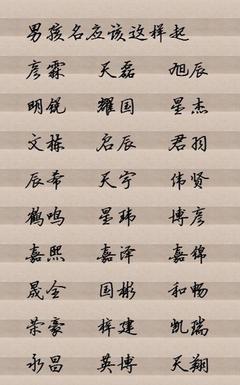 男孩名应该这样起
彦霖 天磊 旭辰
明锐 耀国 星杰
文栋 启辰 君羽
辰希 天宇 伟贤
鹤鸣 星玮 博彦
嘉熙 嘉泽 嘉锦
晟全 国彬 和畅
荣豪 梓建 凯瑞
永昌 英博 天翔